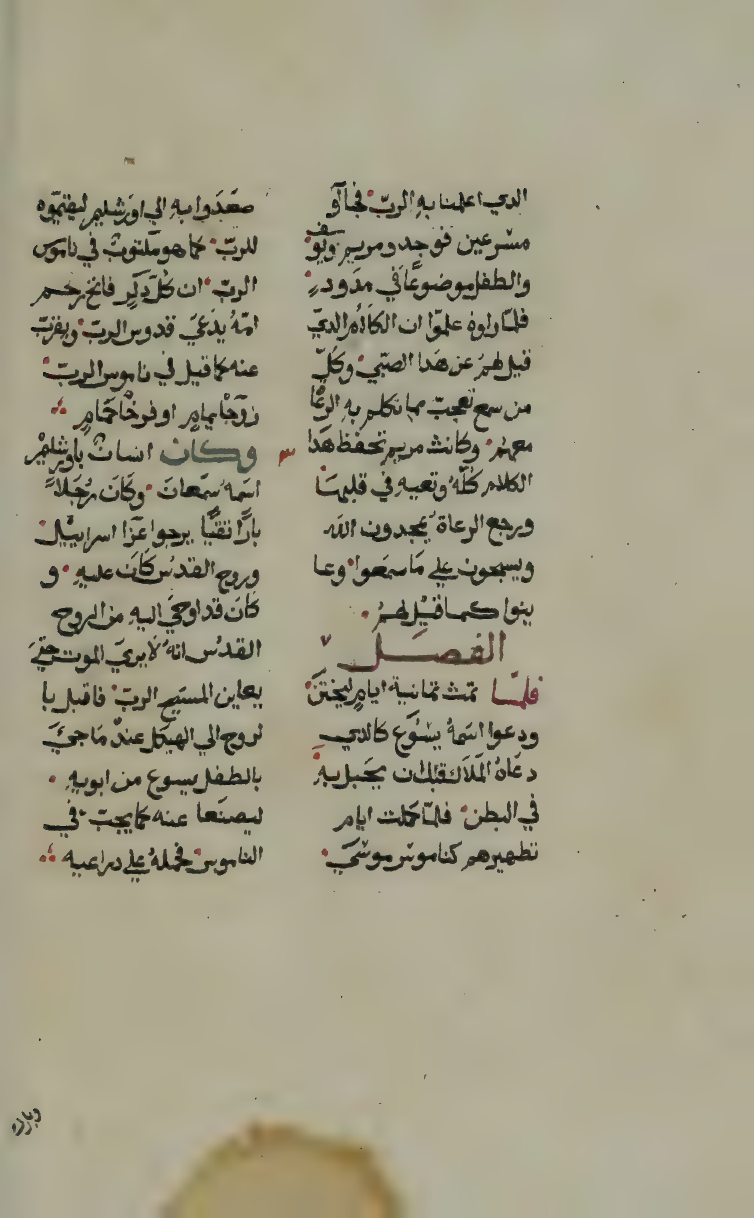 الدي اعلمنا به الرب فجآؤ
مسرعين فوجدو مريم ويوسف
والطفل موضوعًا في مدود
فلمّا راوهُ علموا ان الكلام الديّ
قيل لهم عن هدا الصبّي وكلّ
من سمع تعجبّ مما تكلم به الرعاا
معهمُ وكانت مريم تحفظ هدا
الكلام كلّه وتعيه في قلبهسَا
ورجع الرعاة يمجدون الله
ويسبحون علي مَا سمعوا وعا
ينوا كمما قيل لهمُ
الفصل ٧
فلمّا تمت ثمانية ايام ليختنَ
ودعوا اسَمهُ يسُوع كالدي
دعَاهُ الملاك قبل ان يحبل بهِ
في البطن فلمّا كملت ايام
تطهيرهم كناموس موسَيَ
صعَدوا به الي اورشليم ليقيموه
للربّ كما هو مكتوبُ في ناموس
الربّ ان كلّ دكرٍ فاتح رحم
امّهُ يدعيَ قدوس الربّ ويقربّ
عنه كما قيل في ناموس الربّ
زوجا يمامٍ او فرخا حمامٍ
٣ وكان انسانٌ باورشليمُ
اسَمهُ سمَعانَ وكَانَ رُجلاً
بارًا تقيًّا يرجوا عزا اسراييل
وروح القدسُ كَانَ عليه و
كَانَ قد اوحَي اليه من الروح
القدسُ انهُ لا يريَ الموت حتيَ
يعاين المسَيح الربّ فاقبل با
لروح الي الهيكل عندَ مَا جيَ
بالطفل يسوع من ابويه
ليصنعا عنه كما يجبّ في
الناموس فحملهُ علي دراعيه
وبارك